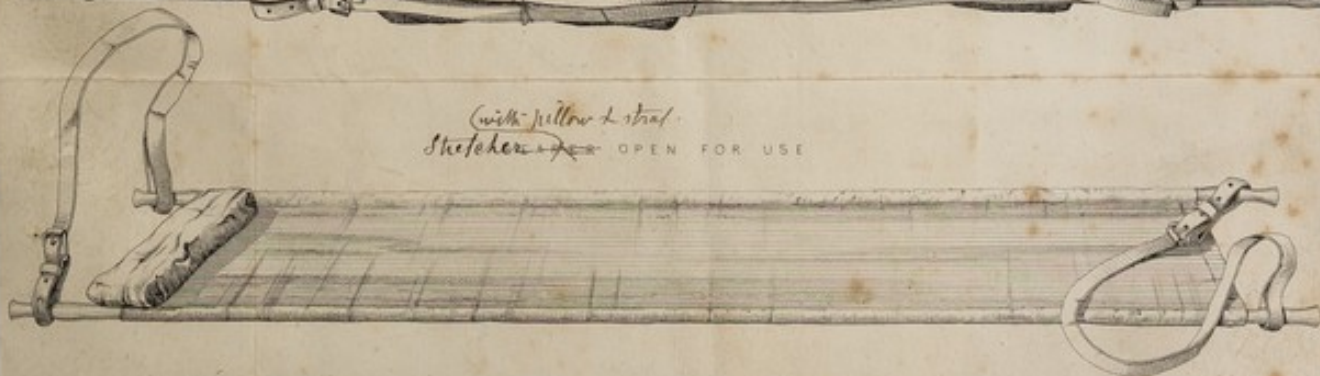 (with pillow & strap.
Stretcher OPEN FOR USE